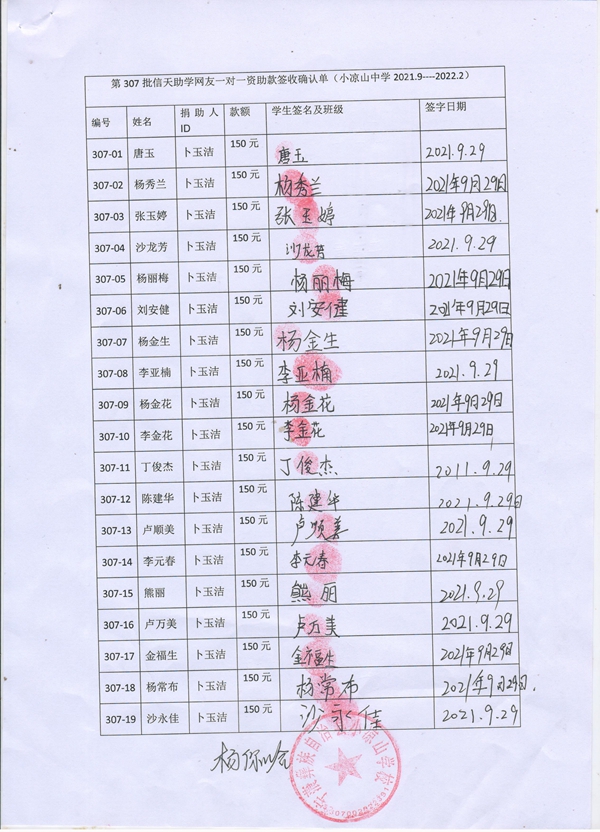 第 307 批信天助学网友一对一资助款签收确认单（小凉山中学 2021.9----2022.2）
编号 姓名 捐助人ID 款额 学生签名及班级 签字日期
307-01 唐玉 卜玉洁 150 元 唐玉 2021.9.29
307-02 杨秀兰 卜玉洁 150 元 杨秀兰 2021年9月29日
307-03 张玉婷 卜玉洁 150 元 张玉婷 2021年9月29日.
307-04 沙龙芳 卜玉洁 150 元 沙龙芳 2021.9.29
307-05 杨丽梅 卜玉洁 150 元 杨丽梅 2021年9月29日
307-06 刘安健 卜玉洁 150 元 刘安健 2021年9月29日
307-07 杨金生 卜玉洁 150 元 杨金生 2021年9月29日
307-08 李亚楠 卜玉洁 150 元 李亚楠 2021.9.29
307-09 杨金花 卜玉洁 150 元 杨金花 2021年9月29日
307-10 李金花 卜玉洁 150 元 李金花 2021年9月29日
307-11 丁俊杰 卜玉洁 150 元 丁俊杰 2011.9.29
307-12 陈建华 卜玉洁 150 元 陈建华 2021.9.29日
307-13 卢顺美 卜玉洁 150 元 卢顺美 2021.9.29
307-14 李元春 卜玉洁 150 元 李元春 2021年9月29日
307-15 熊丽 卜玉洁 150 元 熊丽 2021.9.29
307-16 卢万美 卜玉洁 150 元 卢万美 2021.9.29
307-17 金福生 卜玉洁 150 元 金福生 2021年9月29日
307-18 杨常布 卜玉洁 150 元 杨常布 2021年9月29日.
307-19 沙永佳 卜玉洁 150 元 沙永佳 2021.9.29
彝族自治县小凉山学校